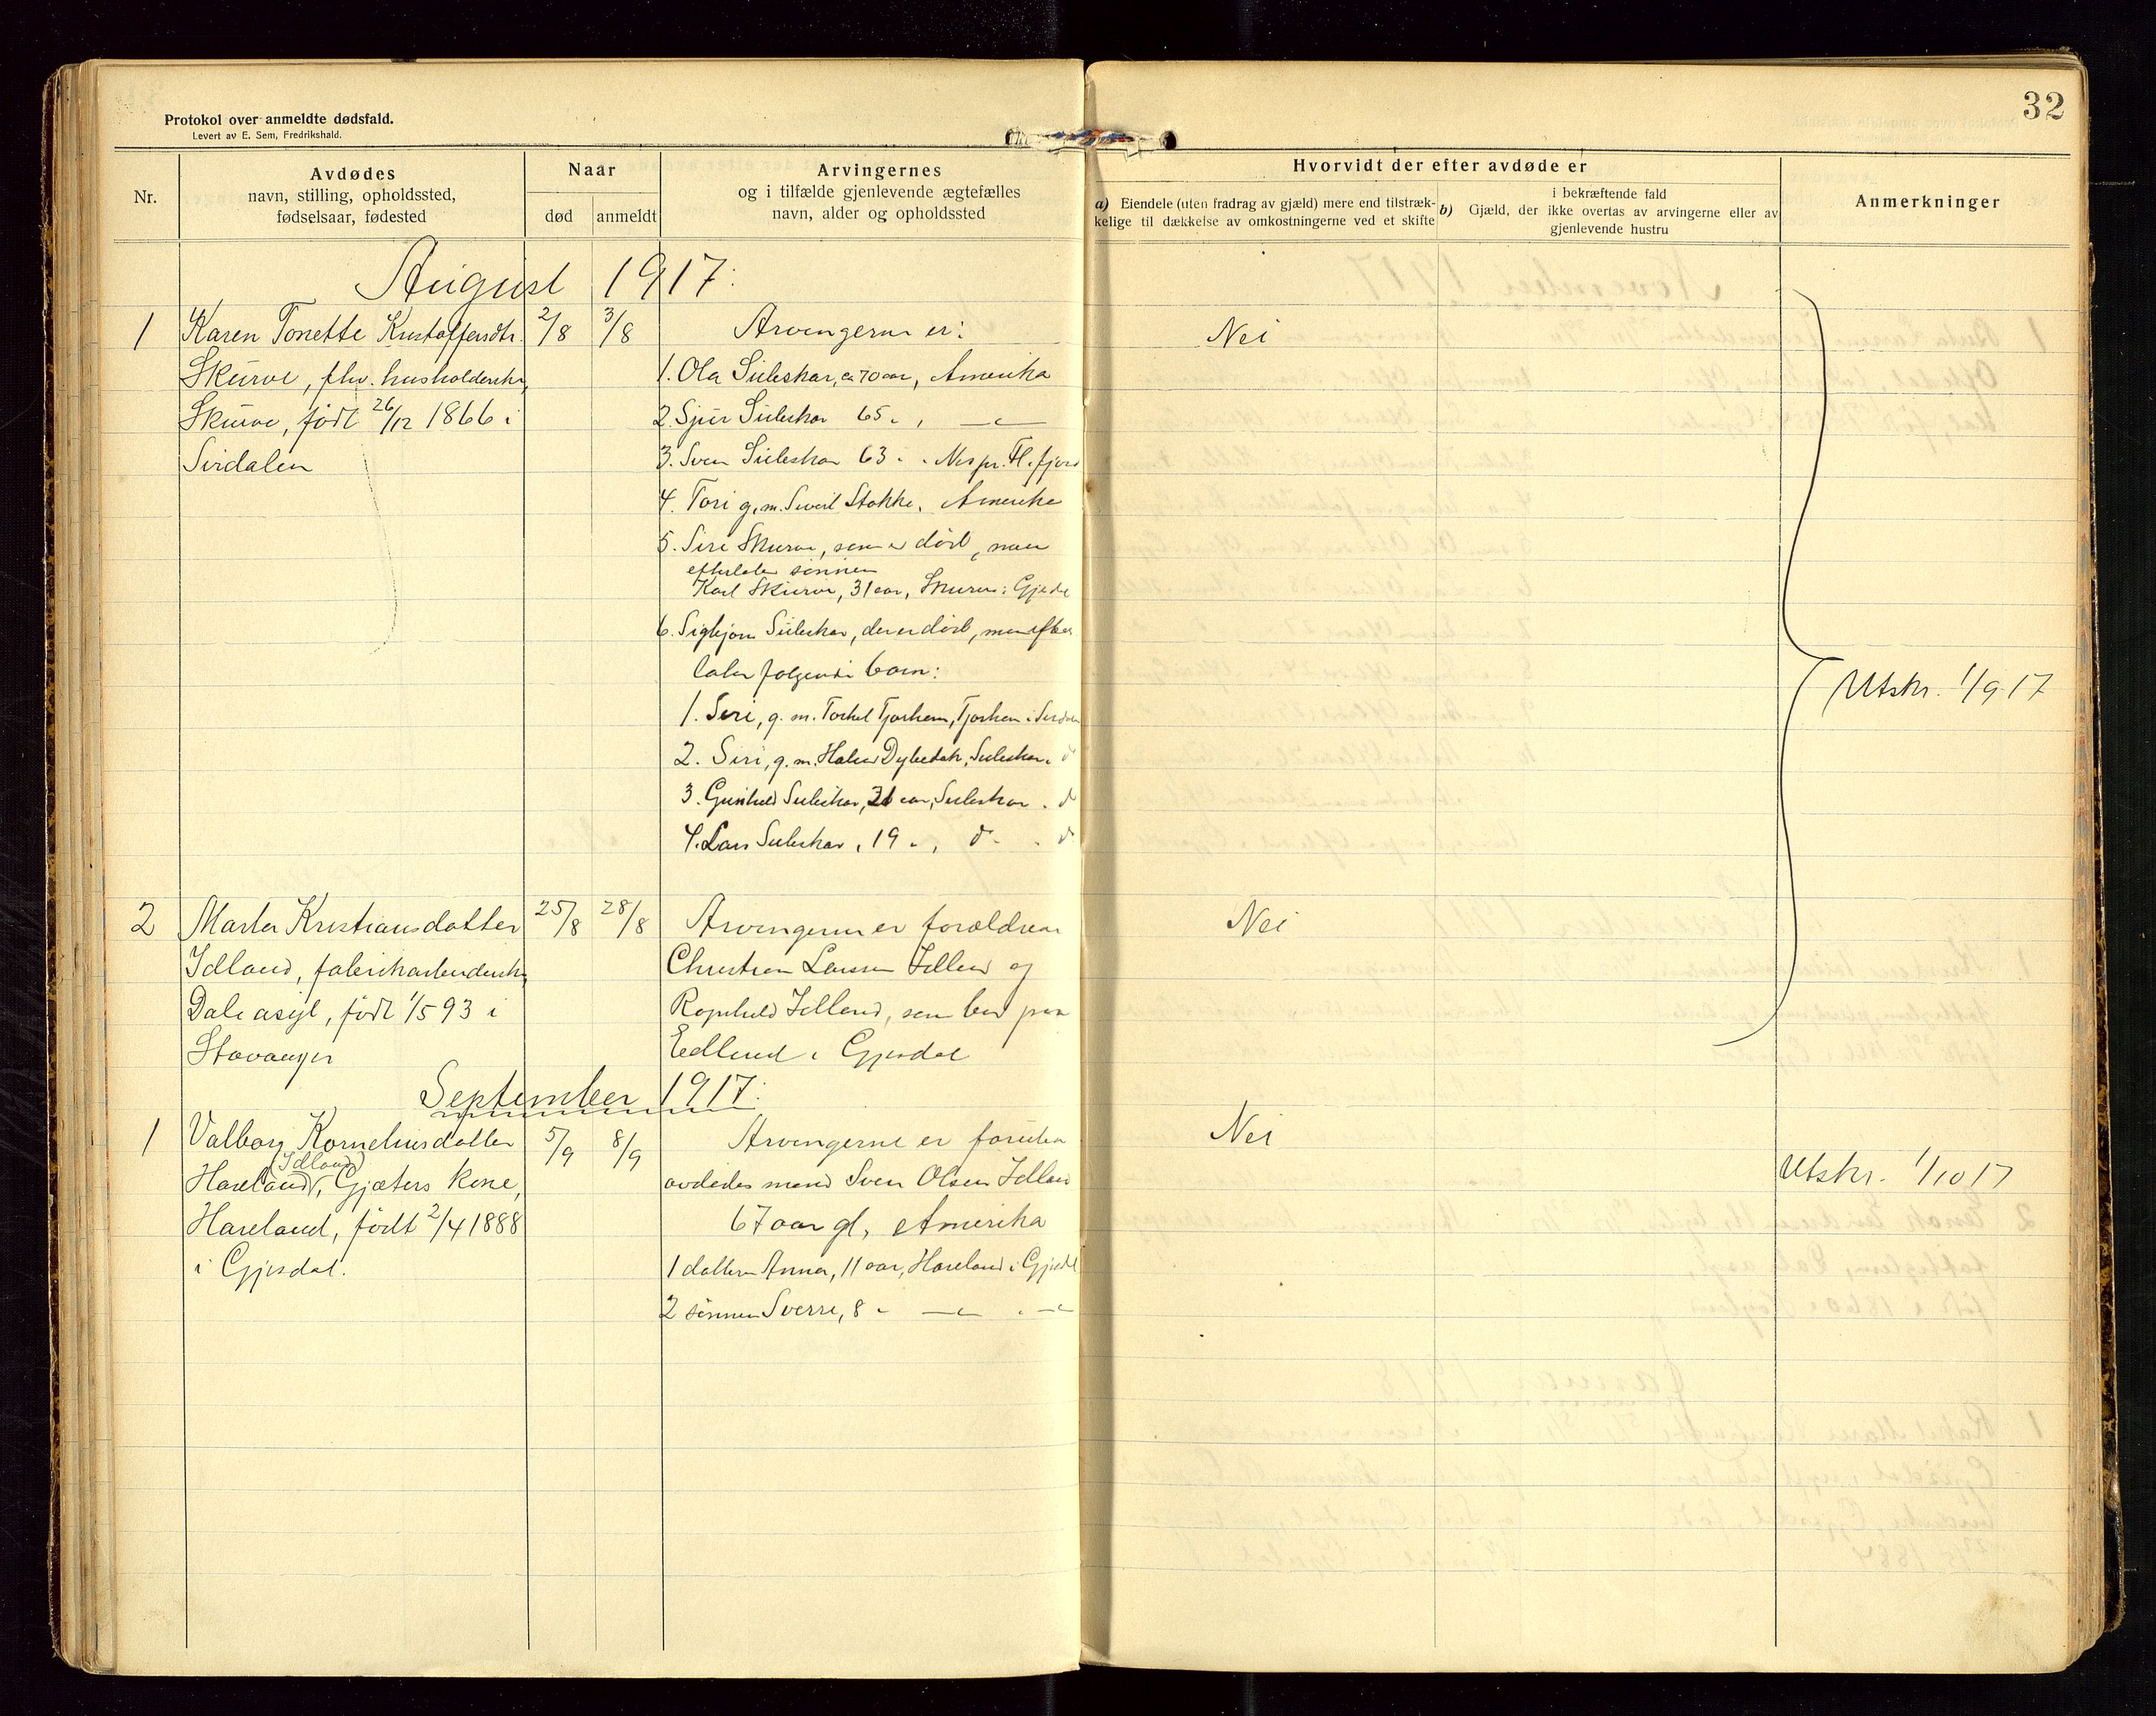 32
Protokol over anmeldte dødsfald.
Levert av E. Sem, Fredrikshald.
Nr.
Avdødes
navn, stilling, opholdssted,
fødselsaar, fødested
Naar
død
anmeldt
Arvingernes
og i tilfælde gjenlevende ægtefælles
navn, alder og opholdssted
Hvorvidt der efter avdøde er
a) Eiendele (uten fradrag av gjæld) mere end tilstræk-
kelige til dækkelse av omkostningerne ved et skifte
b) Gjæld, der
i bekræftende fald
ikke overtas av arvingerne eller av
gjenlevende hustru
Anmerkninger
August 1917:
1 Karen Tonette Kristoffersdtr. 2/8 3/8 Arvingerne er: Nei
Skurve, fhv. husholderske, 1. Ola Suleskar, ca 70 aar, Amerika
Skurve, født 26/12 1866 i 2. Sjur Suleskar 65 " , —"—
Sirdalen 3. Sven Suleskar 63 " . Nes pr. Fl.fjord
4. Tori g.m. Sivert Stokke, Amerika
5. Siri Skurve, som er død, men
efterlater sønnen
Karl Skurve, 31 aar, Skurve i Gjesdal
6. Sigbjørn Suleskar, der er død, men efter
later følgende barn:
1. Siri, g.m. Torkel Tjorhom, Tjorhom i Sirdalen
2. Siri, g.m. Dybedak, Suleskar. do
3. Gunhild Suleskar, 21 aar, Suleskar . do
4. Lars Suleskar, 19 " , do . do
Utskr. 1/9 17
2 Marta Kristiansdatter 25/8 28/8 Arvingerne er forældrene Nei
Idland, fabrikarbeiderske, Christian Larsen Idland og
Dale asyl, født 1/5 93 i Ragnhild Idland, som bor paa
Stavanger Edland i Gjesdal
September 1917:
1 Valborg Korneliusdatter 5/9 8/9 Arvingerne er foruten Nei
(Idland)
Haveland, Gjæters kone, avdødes mand Sven Olsen Idland Utskr. 1/10 17
Haveland, født 2/4 1888 67 aar gl, Amerika
i Gjesdal. 1 datteren Anna, 11 aar, Haveland i Gjesdal
2 sønnen Sverre, 8 " —"— " —"—